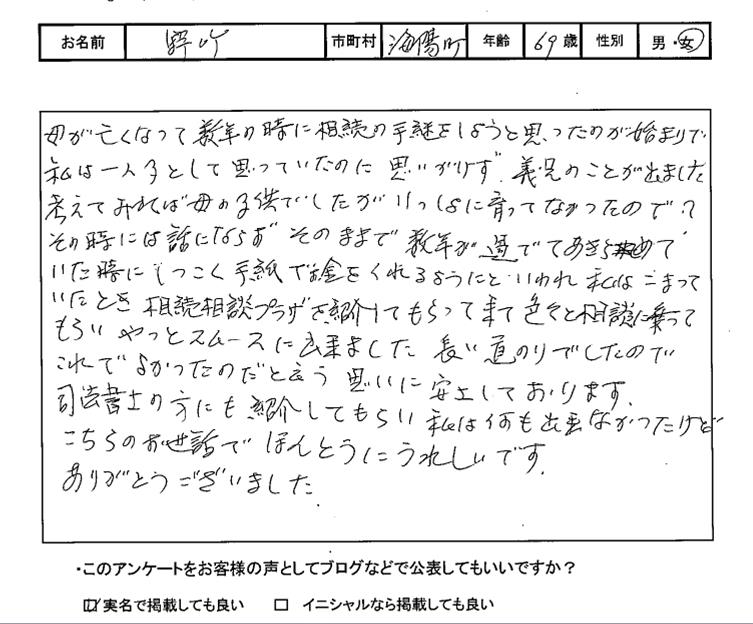 お名前 市町村 海陽町 年齢 69歳 性別 男・女
母が亡くなって数年の時に相続の手続をしようと思ったのが始まりで
私は一人子として思っていたのに思いがけず、義兄のことが出ました
考えてみれば母の子供でしたがいっしょに育ってなかったので?
その時には話にならず そのままで数年が過でてあきらめて
いた時にしつこく手紙でお金をくれるようにといわれ私はこまって
いたとき 相続相談プラザを紹介してもらって来て色々と相談に乗って
もらい やっとスムースに出来ました 長い道のりでしたので
これでよかったのだと言う思いに安土しております。
司法書士の方にも紹介してもらい私は何も出来なかったけど
こちらのお世話でほんとうにうれしいです。
ありがとうございました。
・このアンケートをお客様の声としてブログなどで公表してもいいですか?
☑実名で掲載しても良い □ イニシャルなら掲載しても良い